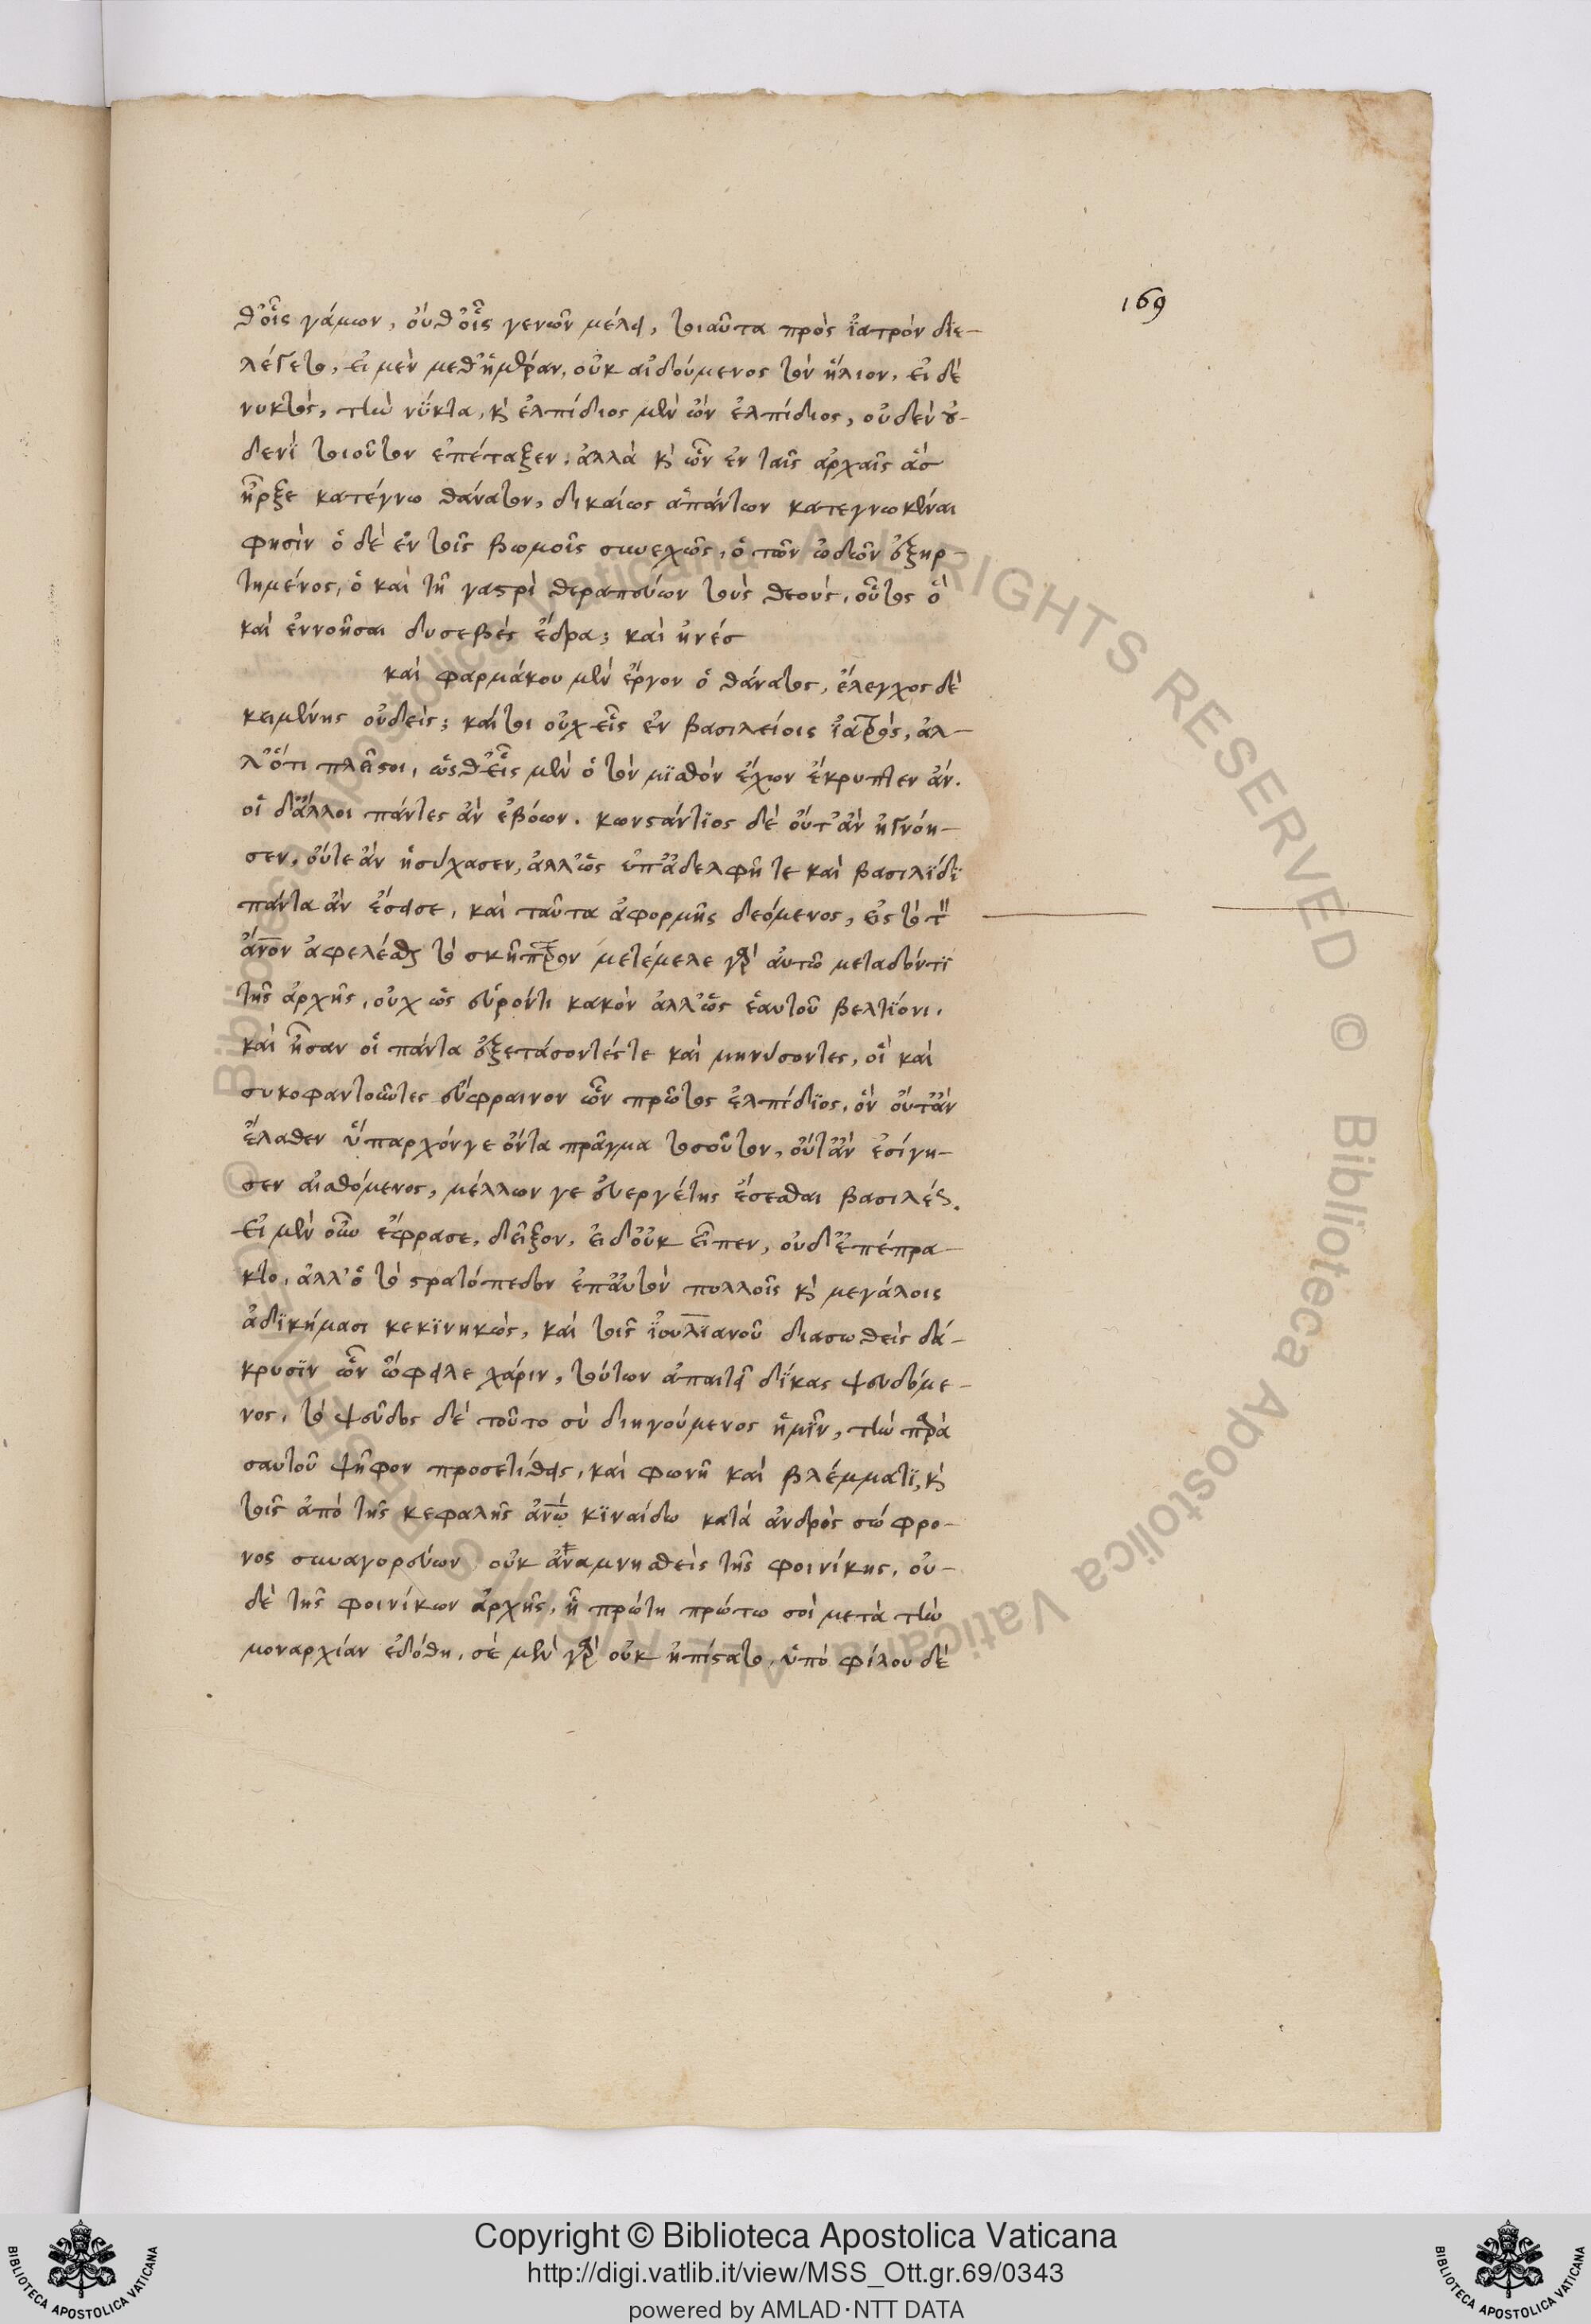 169
θ' οἷς γάμων, οὔθ' οἷς γενῶν μέλει, τοιαῦτα πρὸς ἰατρὸν διε-
λέγετο, εἰ μὲν μεθ' ἡμέραν, οὐκ αἰδούμενος τὸν ἥλιον, εἰ δὲ
νυκτὸς, τὴν νύκτα, κὶ ἐλπίδιος μὲν ὢν ἐλπίδιος, οὐδὲν ου-
δενὶ τοιοῦτον ἐπέταξεν, ἀλλὰ κὶ ὧν ἐν ταῖς ἀρχαῖς ἃς
ἦρξε κατέγνω θάνατον, δικαίως ἁπάντων κατεγνωκέναι
φησὶν ὁ δὲ ἐν τοῖς βωμοῖς συνεχῶς, ὁ τῶν ὠδῶν ἐξηρ-
τημένος, ὁ καὶ τῇ γαστρὶ θεραπεύων τοὺς θεοὺς, οὗτος ὃ
καὶ ἐννοῆσαι δυσεβὲς ἔδρα; καὶ
καὶ φαρμάκου μὲν ἔργον ὁ θάνατος, ἔλεγχος δὲ
κειμένης οὐδείς; καίτοι οὐχ εἷς ἐν βασιλείοις ἰατρὸς, ἀλ-
λ' ὅτι πλεῖστοι, ὥσθ' εἷς μὲν ὁ τὸν μισθὸν ἔχων ἔκρυπτεν ἄν.
οἱ δ' ἄλλοι πάντες ἂν ἐβόων. κωνστάντιος δὲ οὔτ' ἂν ἠγνόη-
σεν, οὔτε ἂν ἡσύχασεν, ἀλλ' ὡς ὑπ' ἀδελφῇ τε καὶ βασιλίδι
πάντα ἂν ἔσεισε, καὶ ταῦτα ἀφορμῆς δεόμενος, εἰς τὸ τ
ἀνον ἀφελέσθαι τὸ σκῆπτρον μετέμελε γὰρ αὐτῶ μεταδόντι
τῆς ἀρχῆς, οὐχ ὡς εὑρόντι κακὸν ἀλλ' ὡς ἑαυτοῦ βελτίονι.
καὶ ἦσαν οἱ πάντα ἐξετάσοντές τε καὶ μηνύσοντες, οἳ καὶ
συκοφαντοῦντες εὔφραινον ὧν πρῶτος ἐλπίδιος, ὃν οὔτ' ἂν
ἔλαθεν ὕπαρχόν γε ὄντα πρᾶγμα τοσοῦτον, οὔτ' ἂν ἐσίγη-
σεν αἰσθόμενος, μέλλων γε εὐεργέτης ἔσεσθαι βασιλέως.
Εἰ μὲν οὖν ἔφρασε, δεῖξον, εἰ δ' οὐκ εἶπεν, οὐδ' ἐπέπρα-
κτο, ἀλλ' ὁ τὸ στρατόπεδον ἐπ' αὐτὸν πολλοῖς κὶ μεγάλοις
ἀδικήμασι κεκινηκὼς, καὶ τοῖς ἰουλιανοῦ διασωθεὶς δά-
κρυσιν ὧν ὤφειλε χάριν, τούτων ἀπαιτεῖ δίκας ψευδόμε-
νος, τὸ ψεῦδος δὲ τοῦτο σὺ διηγούμενος ἡμῖν, τὴν παρὰ
σαυτοῦ ψῆφον προσετίθεις, καὶ φωνῇ καὶ βλέμματι, κὶ
τοῖς ἀπὸ τῆς κεφαλῆς ἀνῶ κιναίδω κατὰ ἀνδρὸς σώφρο-
νος συναγορεύων οὐκ ἀναμνησθεὶς τῆς φοινίκης, οὐ-
δὲ τῆς φοινίκων ἀρχῆς, ἣ πρώτη πρώτω σοὶ μετὰ τὴν
μοναρχίαν ἐδόθη, σὲ μὲν γὰρ οὐκ ἠπίστατο, ὑπὸ φίλου δὲ
Copyright © Biblioteca Apostolica Vaticana
http://digi.vatlib.it/view/MSS_Ott.gr.69/0343
powered by AMLAD·NTT DATA